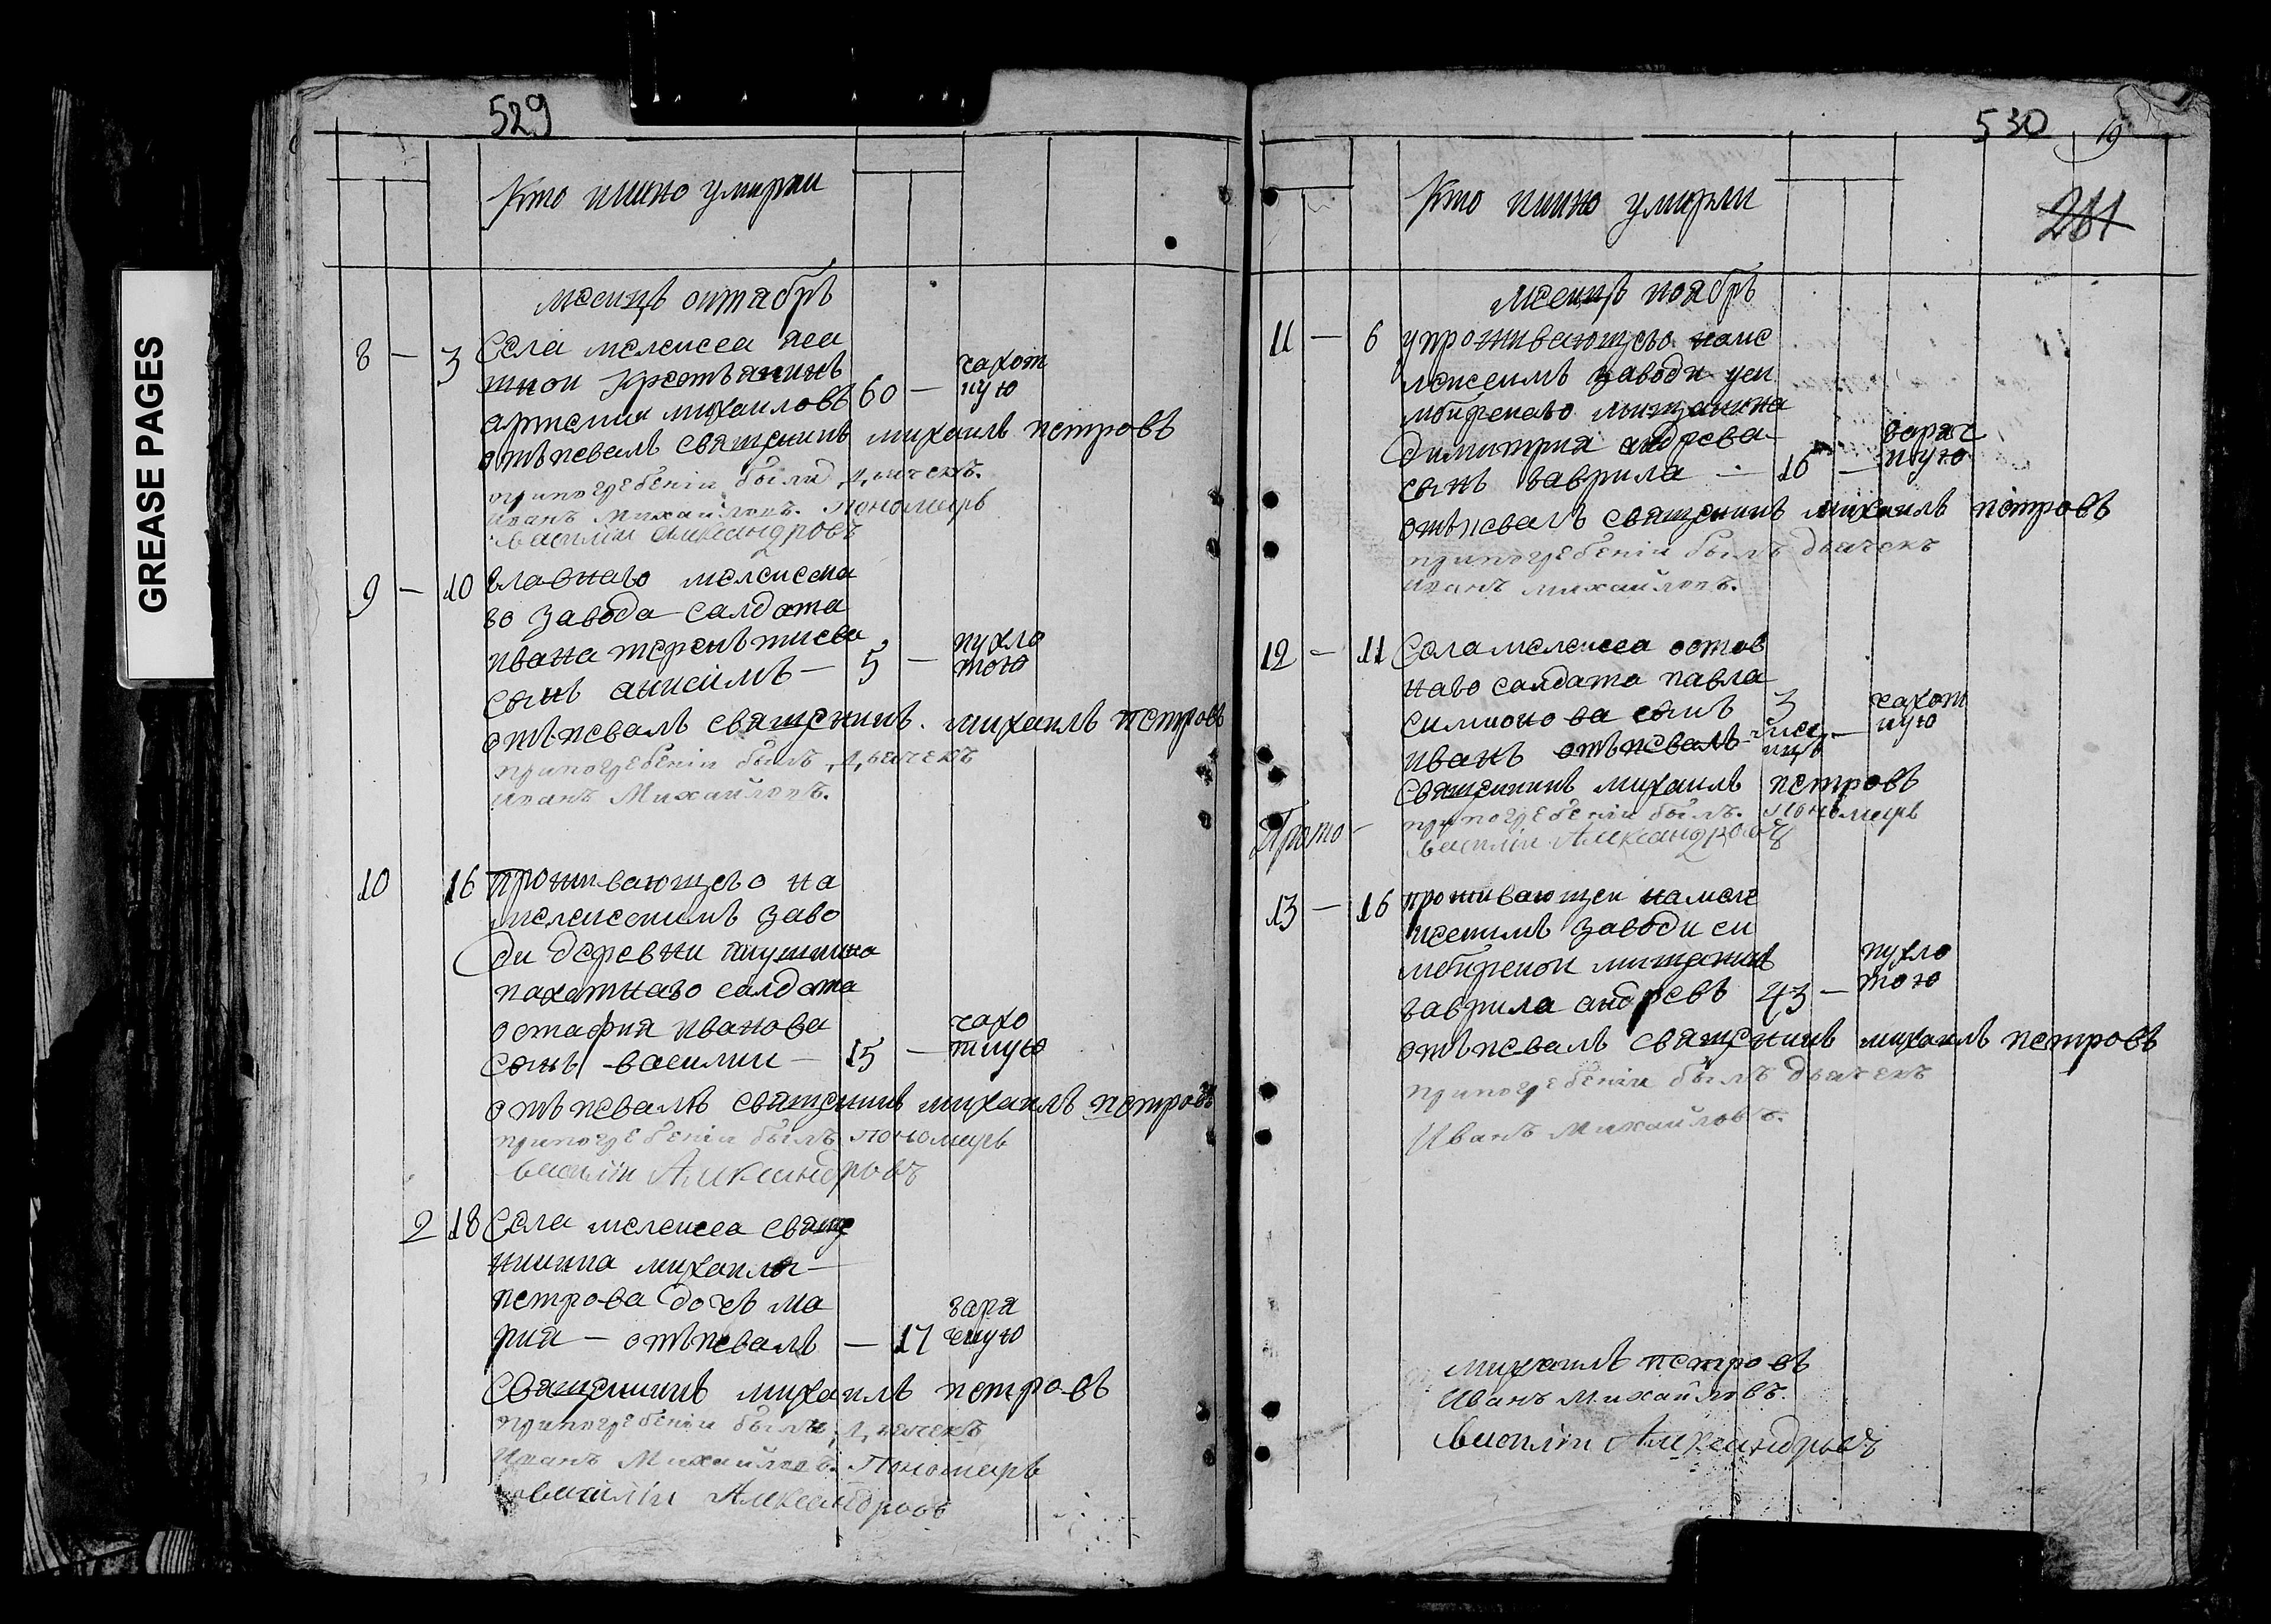 GREASE PAGES
529
Кто имяно умерли
месяцъ октябръ
8 — 3 Села мелекеса яса
шной крестьянинъ
артемии михаиловъ 60 — чахот
ною
отъпевалъ священикъ михаилъ петровъ
припогребеніи были дьячекъ
Иванъ Михайловъ. Пономарь
василіи Александровъ
9 — 10 главнаго мелекеска
го завода салдата
ивана терентиева
сынъ анисимъ — 5 — пухло
тою
отъпевалъ священикъ михаилъ петровъ
припогребеніи былъ дьячекъ
Иванъ Михайловъ.
10 16 проживающего на
мелекескимъ заво
ди деревни
пахатнаго салдата
остафия иванова
сынъ василии — 15 — чахо
тную
отъпевалъ священикъ михаилъ петровъ
припогребеніи былъ Пономарь
василіи Александровъ
2 18 Села мелекеса свяще
нника михаила
петрова дочь ма
рия — отъпевалъ — 17 гаря
чкую
Священикъ михаилъ петровъ
припогребеніи были дьячекъ
Иванъ Михайловъ. Пономарь
василіи Александровъ
530
19
281
Кто имяно умерли
месяцъ ноябръ
11 — 6 упроживающего наме
лекескимъ заводи уси
мбирскаго мищанина
димитрия андрева
сынъ гаврила — 16 — гаряч
кую
отъпевалъ священикъ михаилъ петровъ
припогребеніи былъ дьячекъ
Иванъ михайловъ.
12 — 11 Села мелекеса остав
наго салдата павла
симионова сынъ 3 чахот
иванъ отъпевалъ меся — ную
цъ
священикъ михаилъ петровъ
припогребеніи былъ. Пономарь
василіи Александровъ
13 — 16 проживающеи намеле
кескимъ заводи си
мбирскои мищанинъ
гаврила андревъ 43 — пухло
тою
отъпевалъ священикъ михаилъ петровъ
припогребеніи былъ дьячекъ
Иванъ Михайловъ.
михаилъ петровъ
Иванъ Михайловъ.
василіи Александровъ